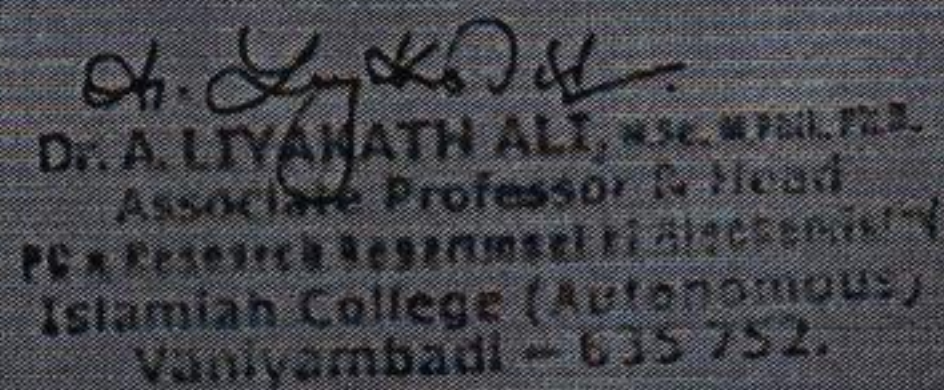 Dr. A. LIYAKATH ALI, M.Sc. M.Phil. Ph.D.
Associate Professor & Head
PG & Research Department of Biochemistry
Islamiah College (Autonomous)
Vaniyambadi – 635 752.